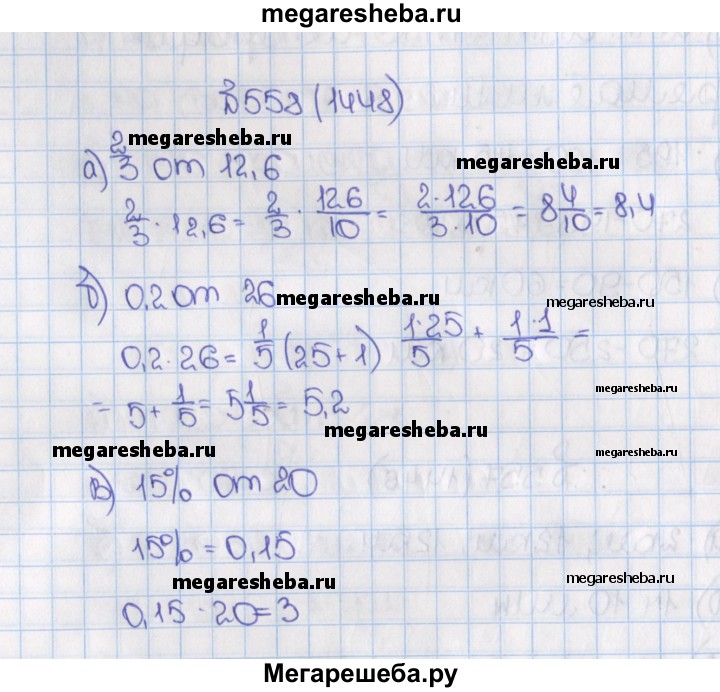 megaresheba.ru
№558 (1448)
megaresheba.ru
а) 2/3 от 12,6 megaresheba.ru
2/3 · 12,6 = 2/3 · 126/10 = 2·126/3·10 = 8 4/10 = 8,4
б) 0,2 от 26 megaresheba.ru megaresheba.ru
0,2 · 26 = 1/5 (25+1) 1·25/5 + 1·1/5 =
= 5 + 1/5 = 5 1/5 = 5,2 megaresheba.ru
megaresheba.ru megaresheba.ru
megaresheba.ru
в) 15% от 20
15% = 0,15
megaresheba.ru megaresheba.ru
0,15 · 20 = 3
Мегарешеба.ру